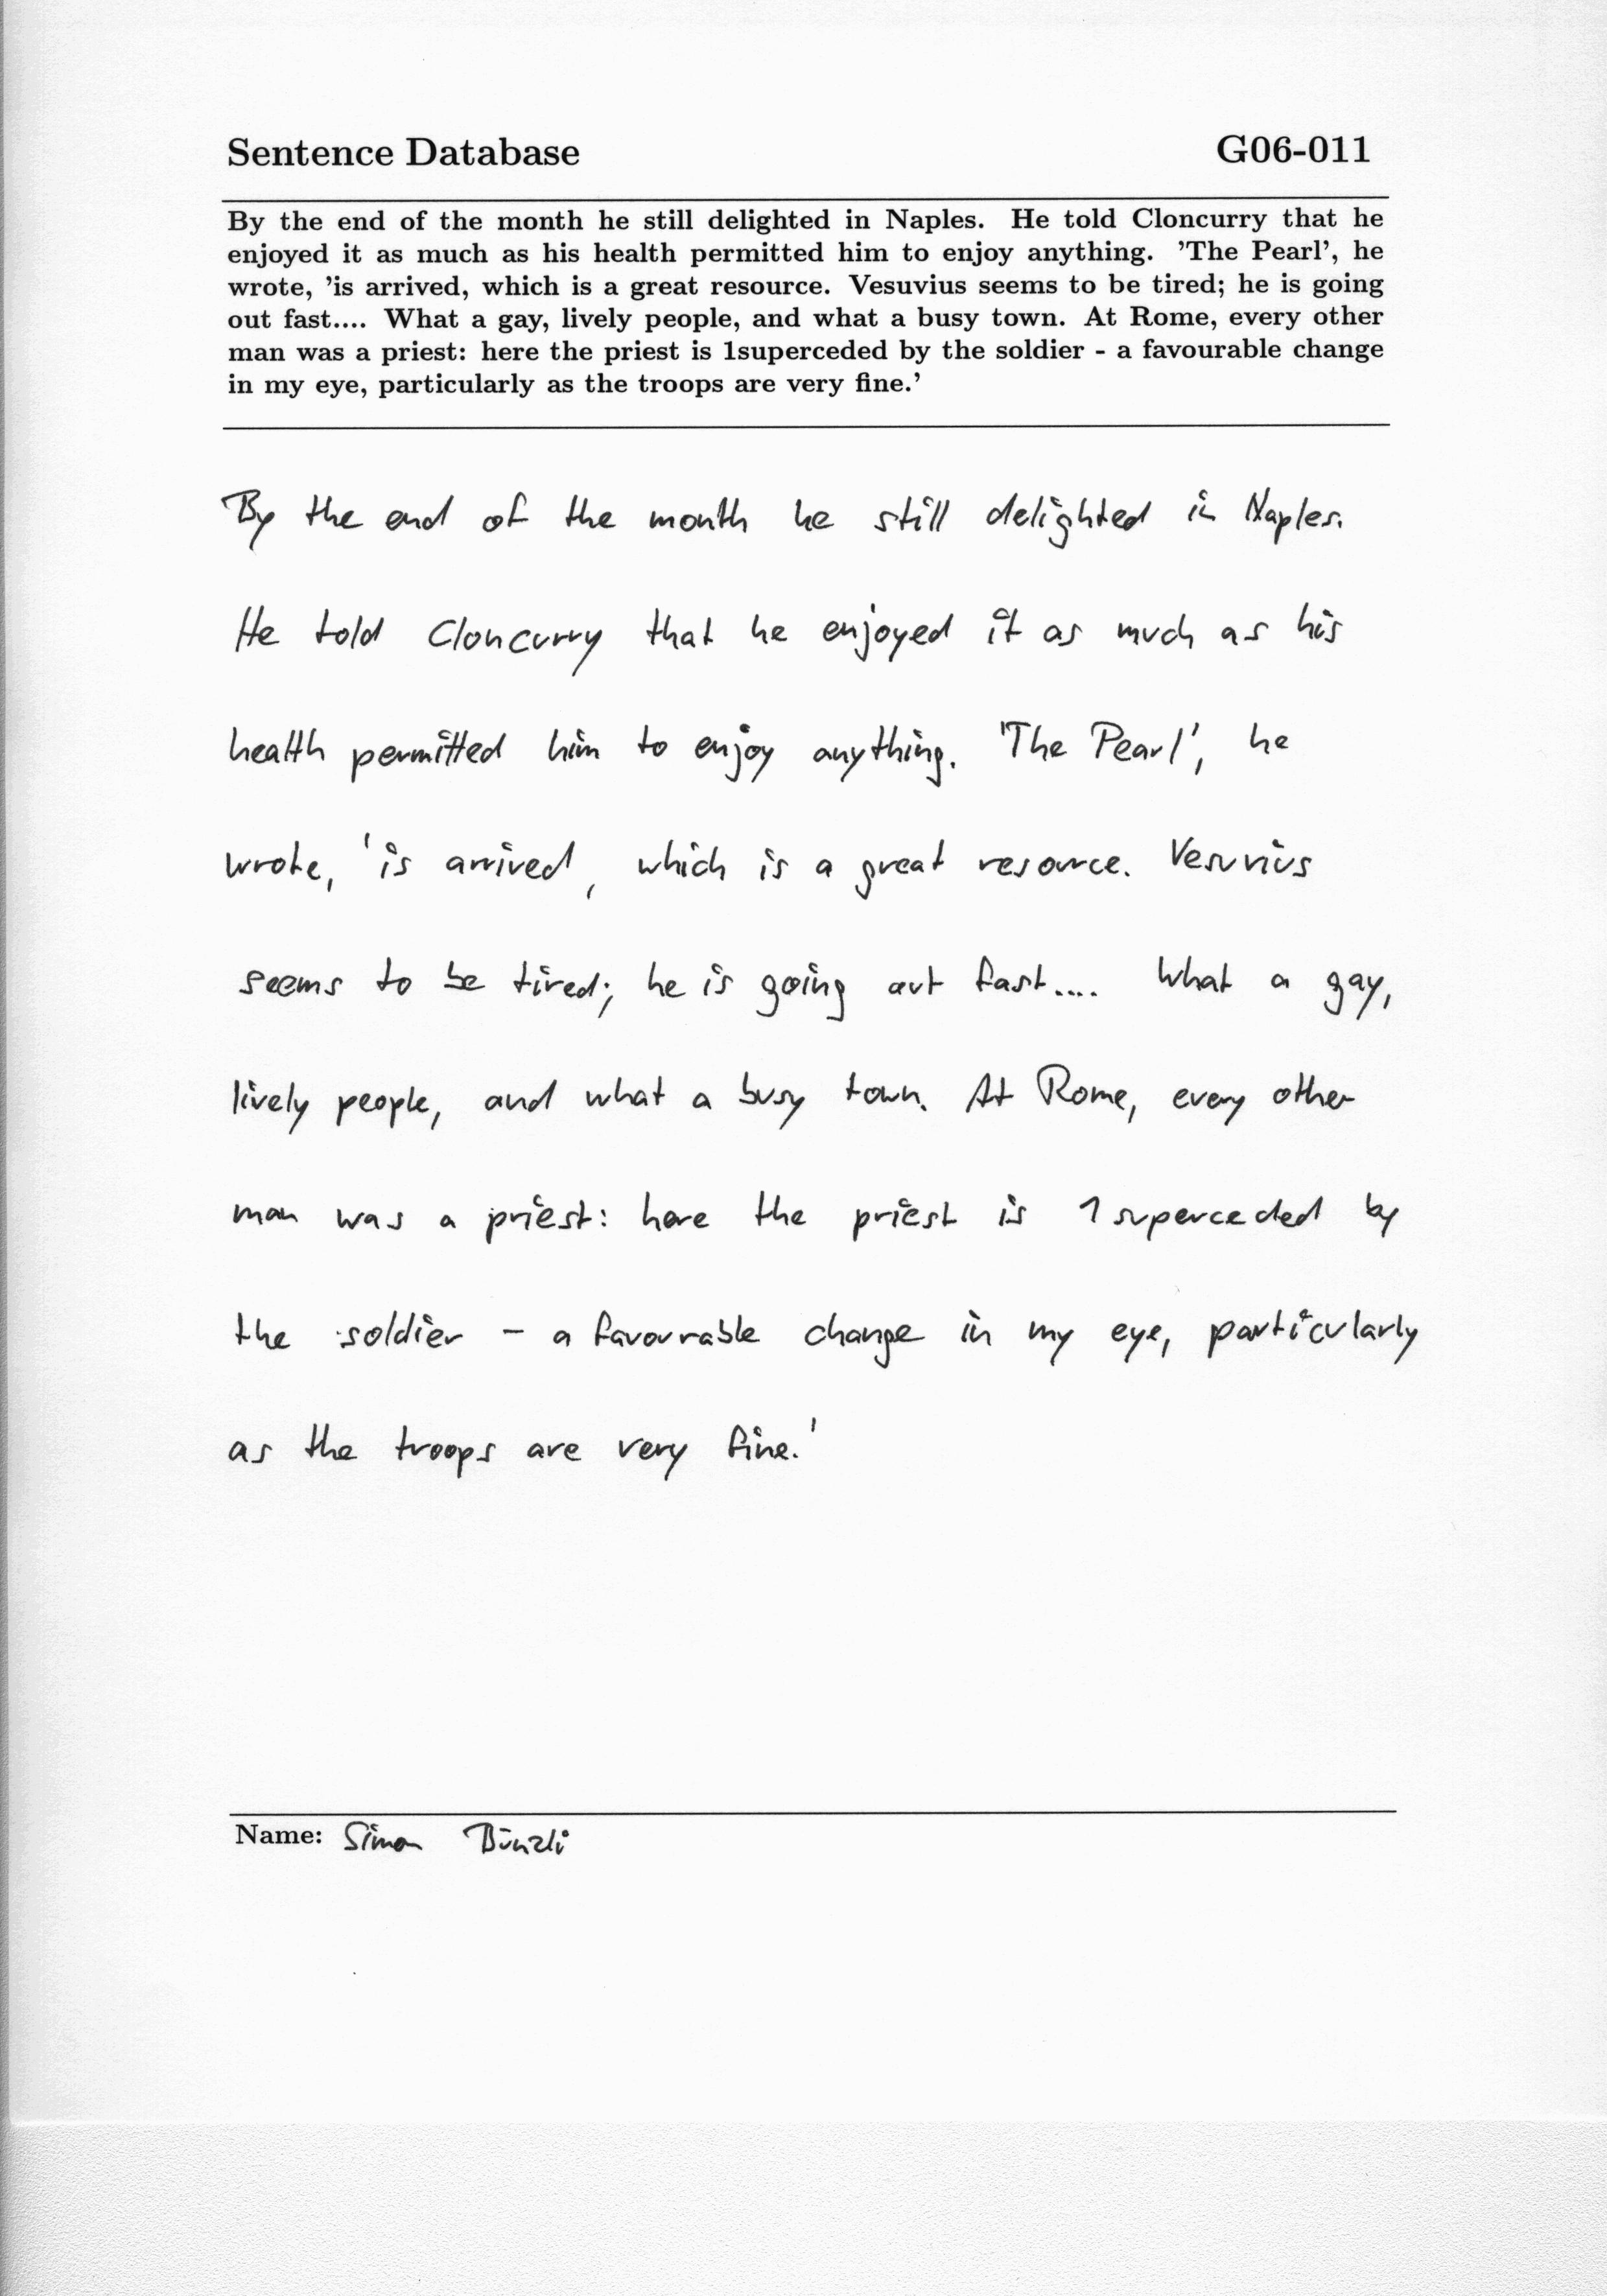 Sentence Database G06-011
By the end of the month he still delighted in Naples. He told Cloncurry that he
enjoyed it as much as his health permitted him to enjoy anything. 'The Pearl', he
wrote, 'is arrived, which is a great resource. Vesuvius seems to be tired; he is going
out fast.... What a gay, lively people, and what a busy town. At Rome, every other
man was a priest: here the priest is 1superceded by the soldier - a favourable change
in my eye, particularly as the troops are very fine.'
By the end of the month he still delighted in Naples.
He told Cloncurry that he enjoyed it as much as his
health permitted him to enjoy anything. 'The Pearl', he
wrote, 'is arrived, which is a great resource. Vesuvius
seems to be tired; he is going out fast.... What a gay,
lively people, and what a busy town. At Rome, every other
man was a priest: here the priest is 1superceded by
the soldier - a favourable change in my eye, particularly
as the troops are very fine.'
Name: Simon Bünzli